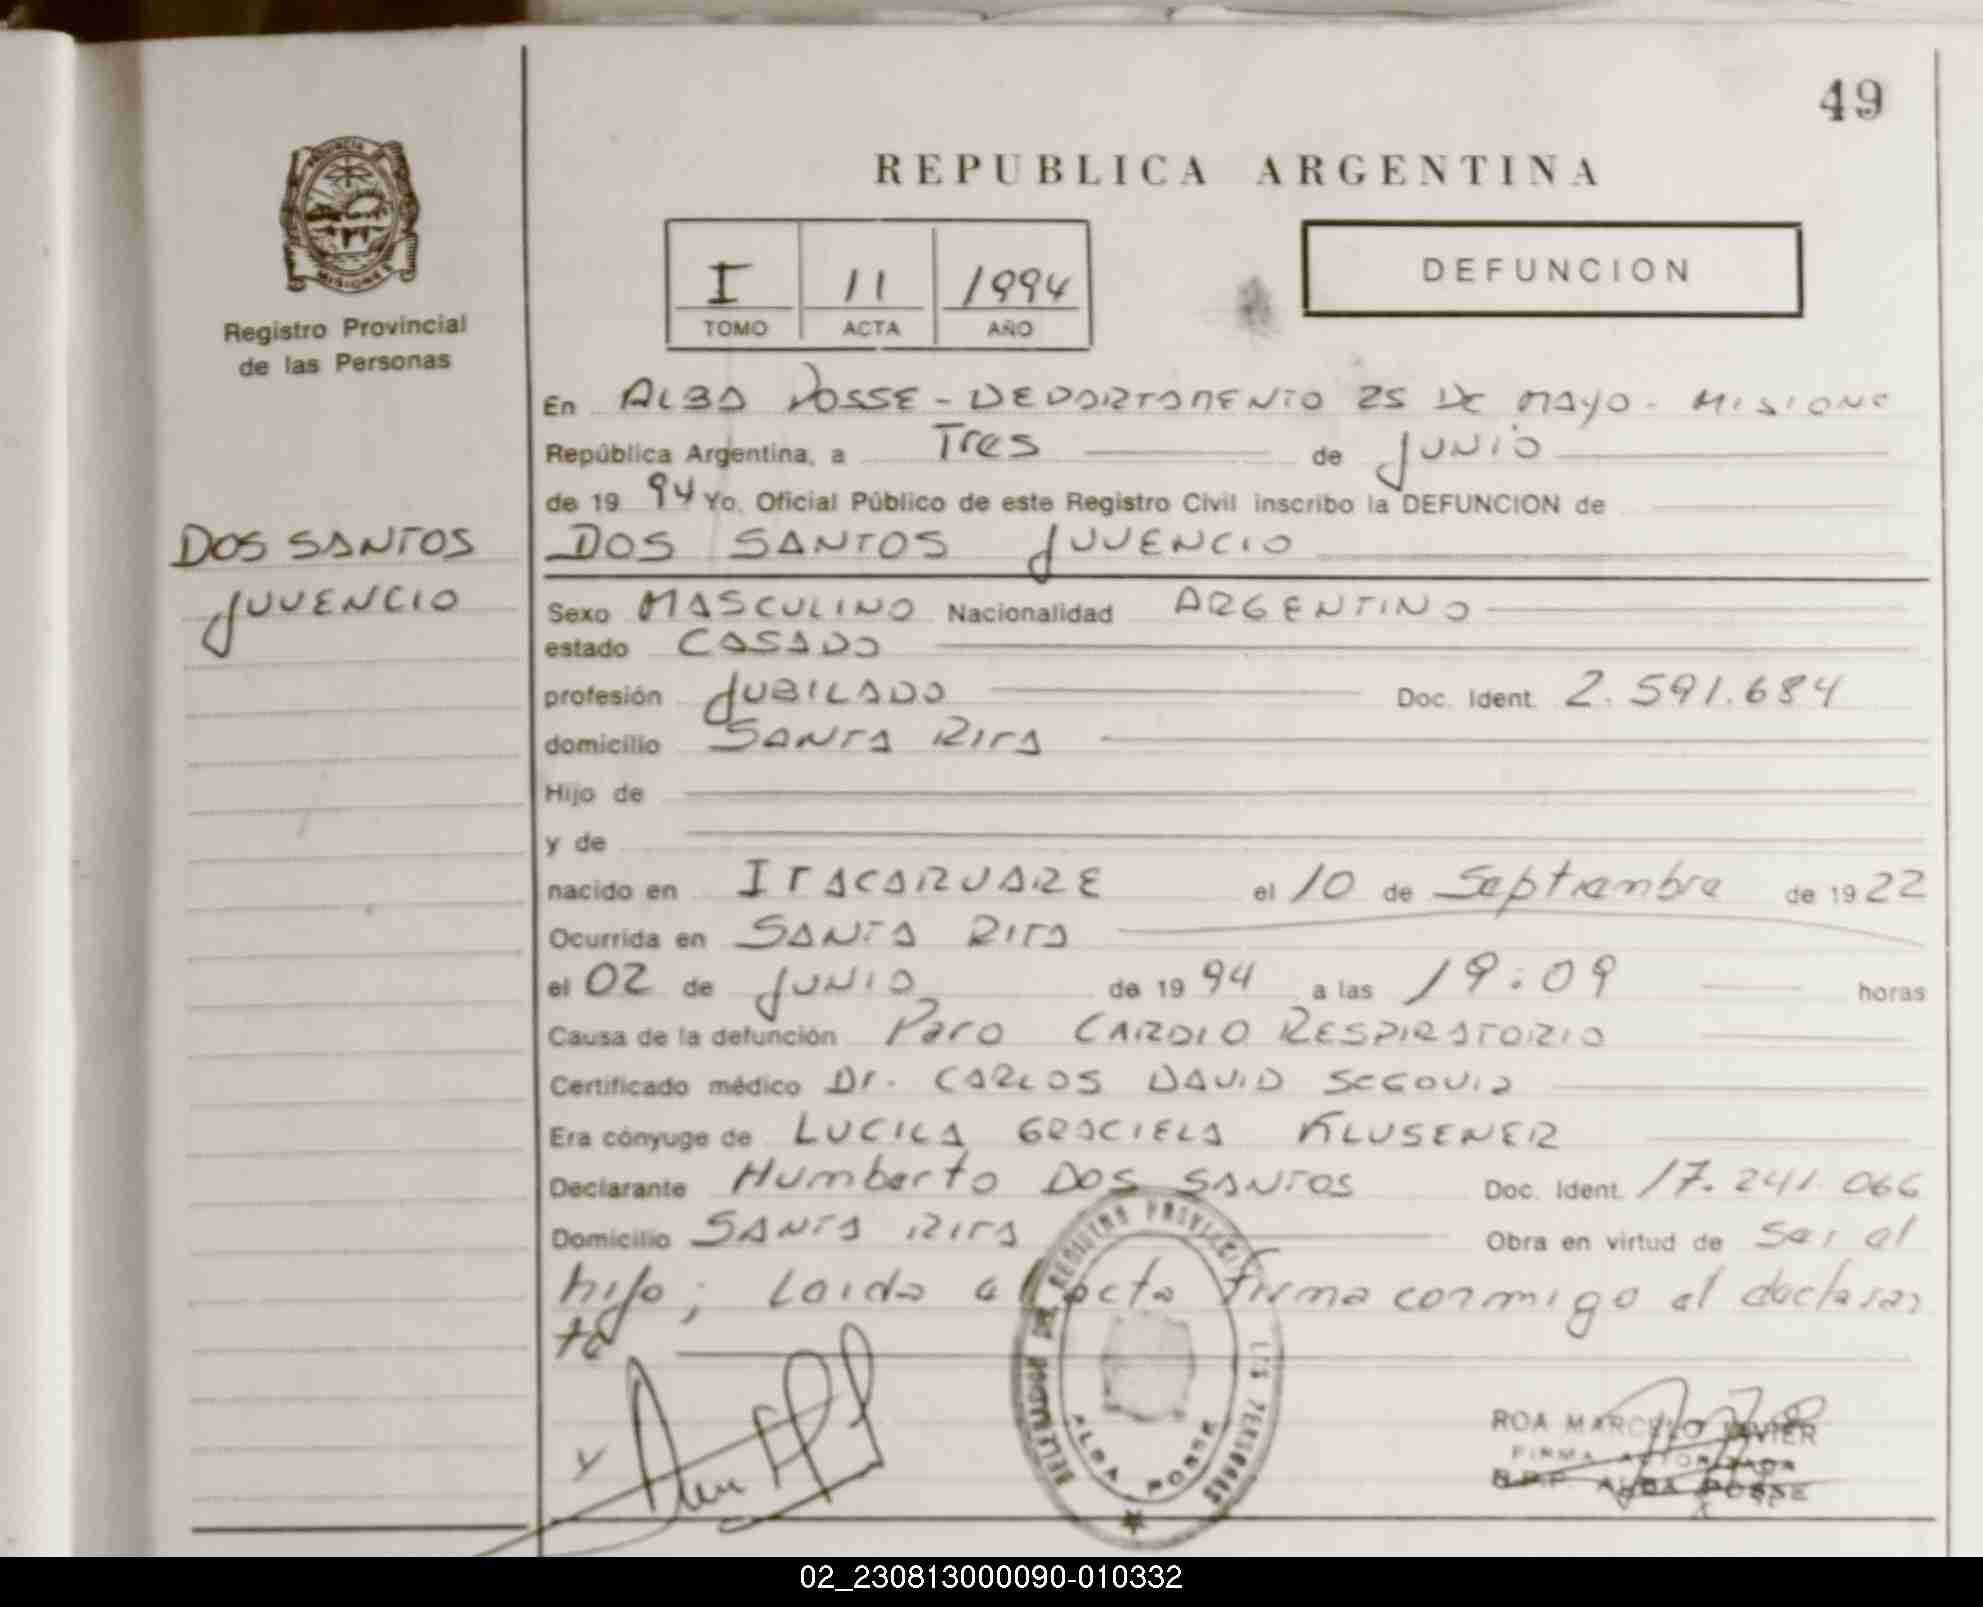 49
REPUBLICA ARGENTINA
PROVINCIA DE
MISIONES
Registro Provincial
de las Personas
I 11 1994
TOMO ACTA AÑO
DEFUNCION
En ALBA POSSE - DEPARTAMENTO 25 DE MAYO - MISIONE
República Argentina, a Tres de JUNIO
de 19 94 Yo, Oficial Público de este Registro Civil inscribo la DEFUNCION de
DOS SANTOS JUVENCIO
DOS SANTOS
JUVENCIO
Sexo MASCULINO Nacionalidad ARGENTINO
estado CASADO
profesión JUBILADO Doc. Ident. 2.591.684
domicilio SANTA RITA
Hijo de
y de
nacido en ITACARUARE el 10 de Septiembre de 19 22
Ocurrida en SANTA RITA
el 02 de JUNIO de 19 94 a las 19:09 horas
Causa de la defunción Paro CARDIO RESPIRATORIO
Certificado médico Dr. CARLOS DAVID SEGOVIA
Era cónyuge de LUCILA GRACIELA KLUSENER
Declarante Humberto DOS SANTOS Doc. Ident. 17.241.066
Domicilio SANTA RITA Obra en virtud de Ser el
hijo; Leida el acta firma conmigo el declaran
te
REGISTRO PROVINCIAL DE LAS PERSONAS
ALBA POSSE
ROA MARCELO JAVIER
FIRMA AUTORIZADA
R.P.P. ALBA POSSE
02_230813000090-010332